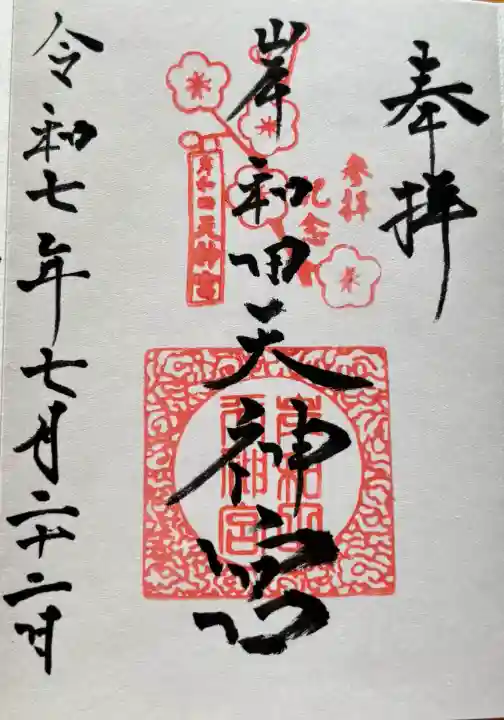 奉拝
参拝
記念
岸和田天神宮
岸和田天神宮
岸和田
天神宮
令和七年七月二十二日